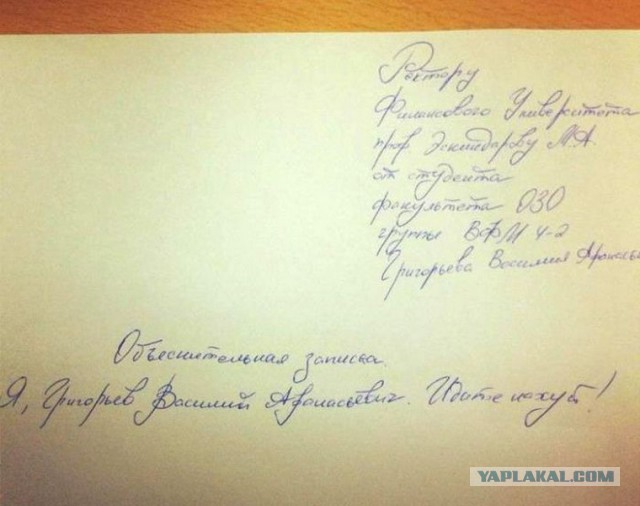 Ректору
Финансового Университета
проф Эскиндарову М.А.
от студента
факультета ОЗО
группы ВФМ 4-2
Григорьева Василия Афанасье
Объяснительная записка.
Я, Григорьев Василий Афанасьевич. Идите нахуй!
YAPLAKAL.COM